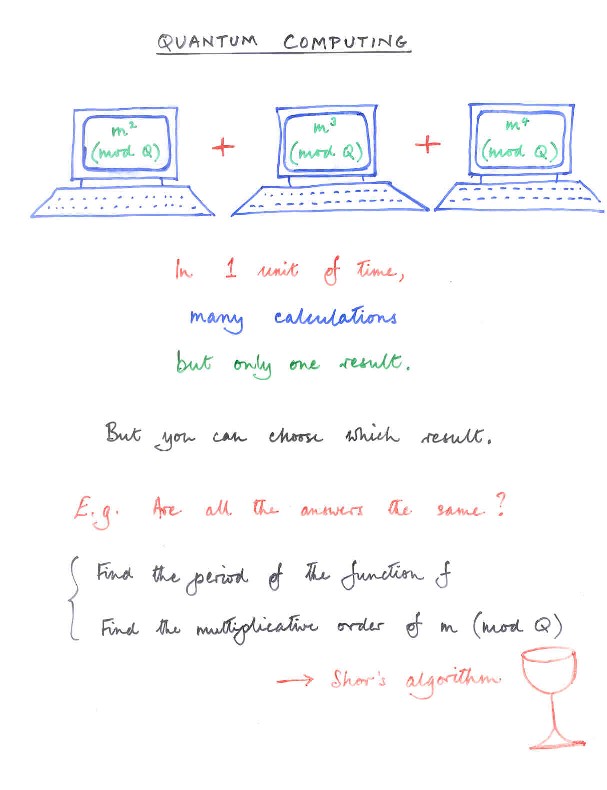 QUANTUM COMPUTING
m² + m³ + m⁴
(mod Q) (mod Q) (mod Q)
In 1 unit of time,
many calculations
but only one result.
But you can choose which result.
E.g. Are all the answers the same?
Find the period of the function f
Find the multiplicative order of m (mod Q)
→ Shor's algorithm